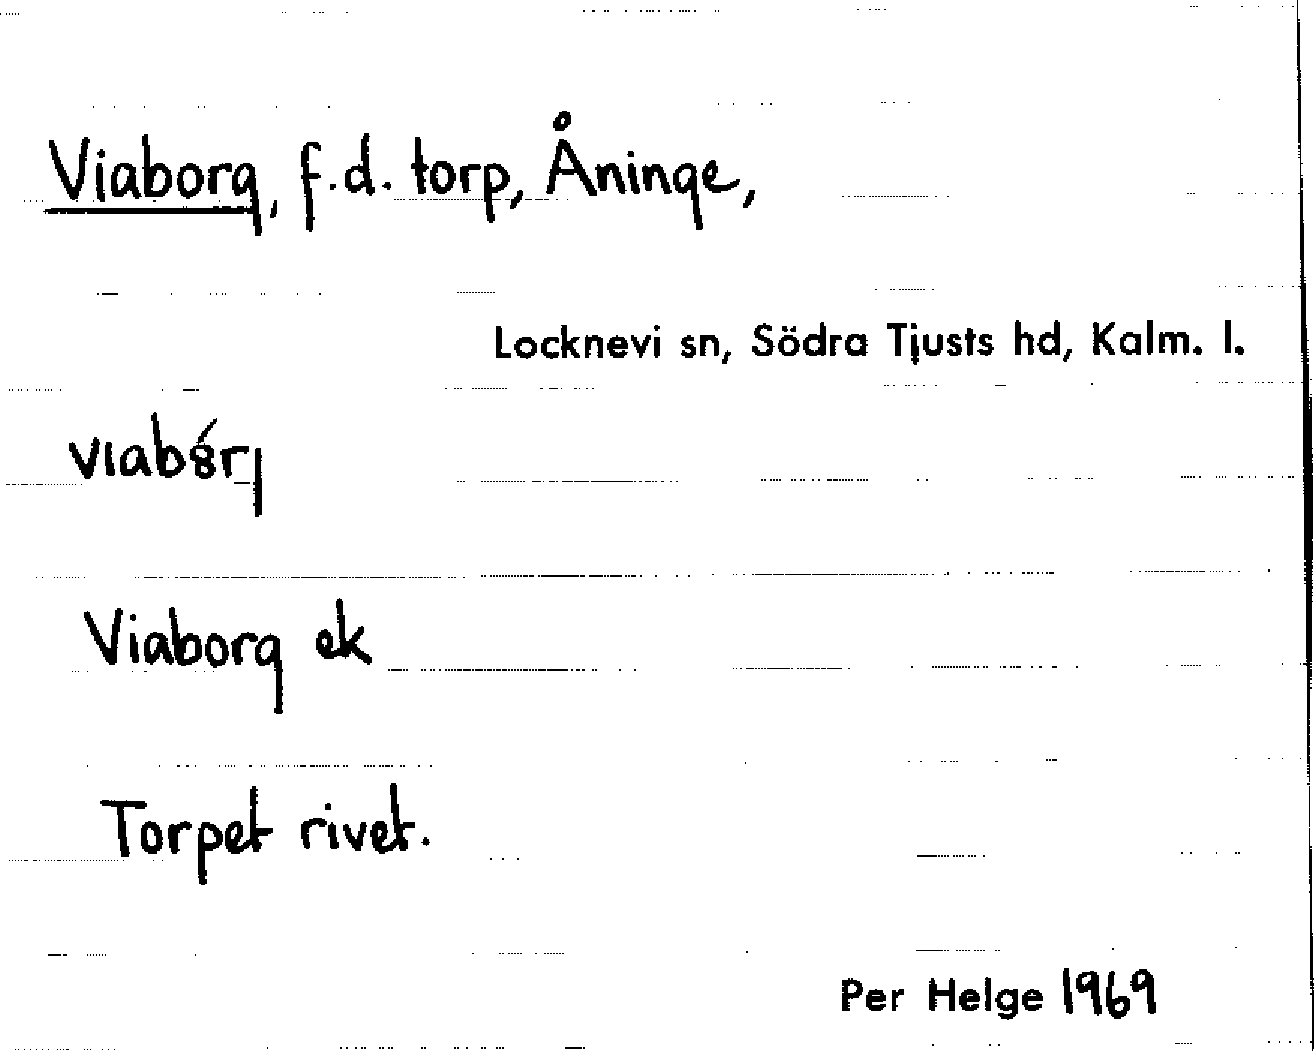 Viaborg, f.d. torp, Åninge,
Locknevi sn, Södra Tjusts hd, Kalm. l.
Viaborg ek
Torpet rivet.
Per Helge 1969